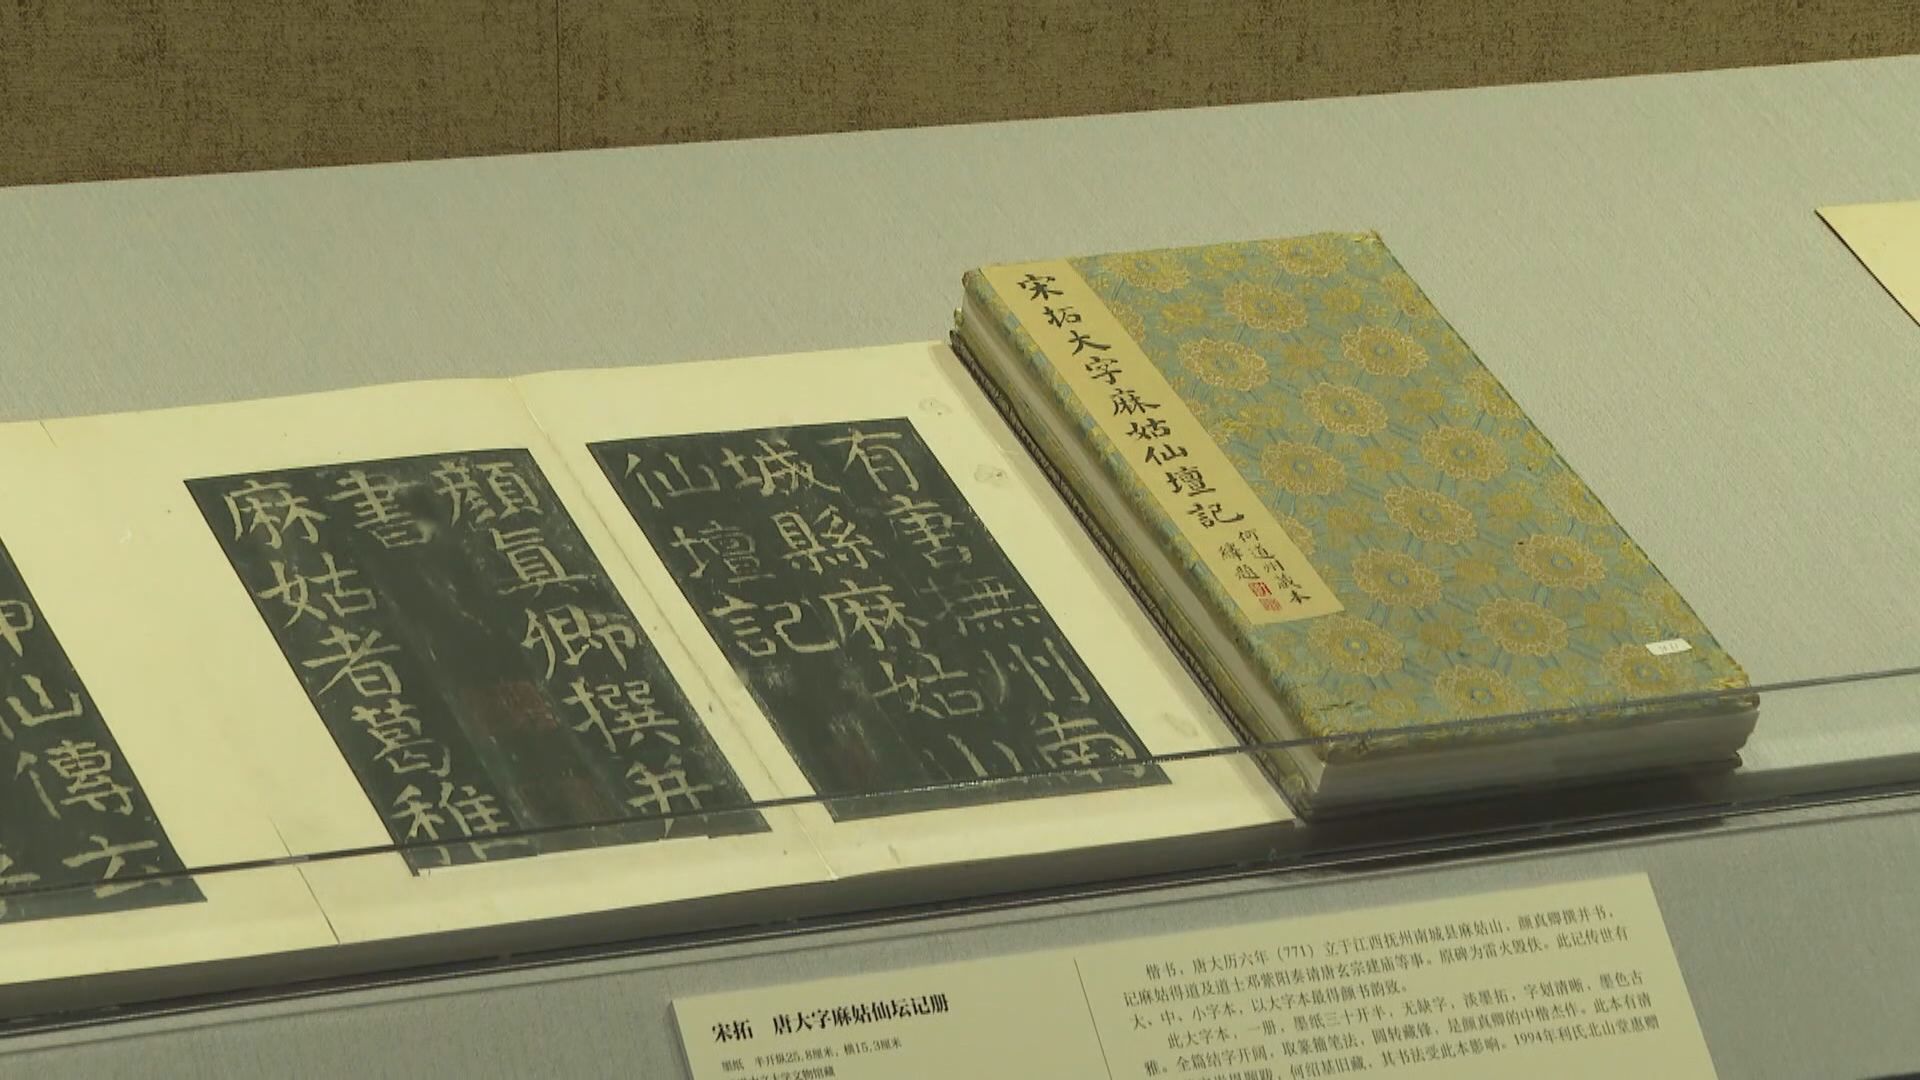 宋拓大字麻姑仙壇記
何道州藏本
緯題
有唐撫州南
城縣麻姑山
仙壇記
顔眞卿撰并
書
麻姑者葛稚
仙傳云
宋拓 唐大字麻姑仙坛记册
墨纸 半开纵25.8厘米，横15.3厘米
大学文物馆藏
楷书，唐大历六年（771）立于江西抚州南城县麻姑山，颜真卿撰并书，
记麻姑得道及道士邓紫阳奏请唐玄宗建庙等事。原碑为雷火毁佚。此记传世有
大、中、小字本，以大字本最得颜书韵致。
此大字本，一册，墨纸三十开半，无缺字，淡墨拓，字划清晰，墨色古
雅。全篇结字开阔，取篆籀笔法，圆转藏锋，是颜真卿的中楷杰作。此本有清
何绍基旧藏，其书法受此本影响。1994年利氏北山堂惠赠